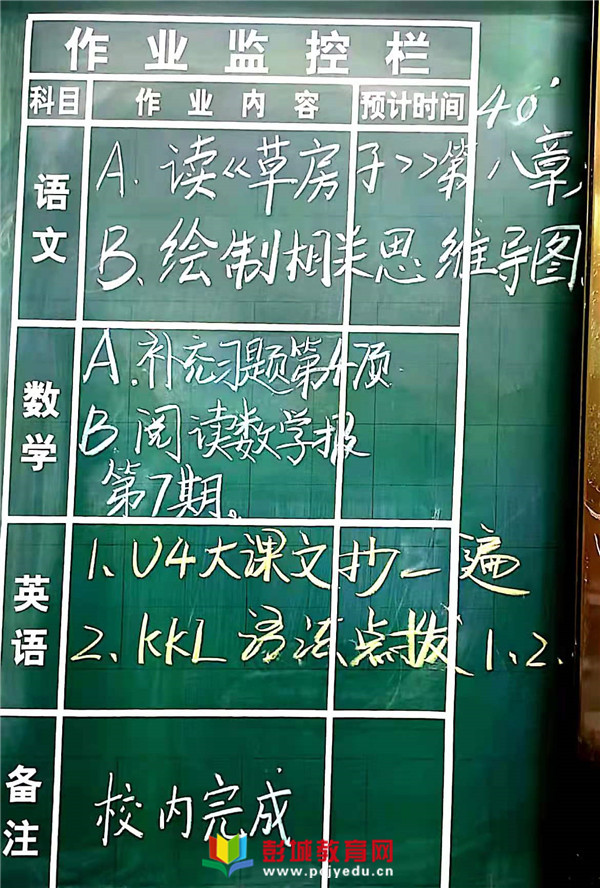 作业监控栏
科目 作业内容 预计时间 40'
语文
A.读《草房子》第八章
B.绘制相关思维导图.
数学
A.补充习题第4页.
B.阅读数学报
第7期。
英语
1、U4大课文抄一遍
2、KKL语法点拨1、2.
备注
校内完成
彭城教育网
www.pcjyedu.cn